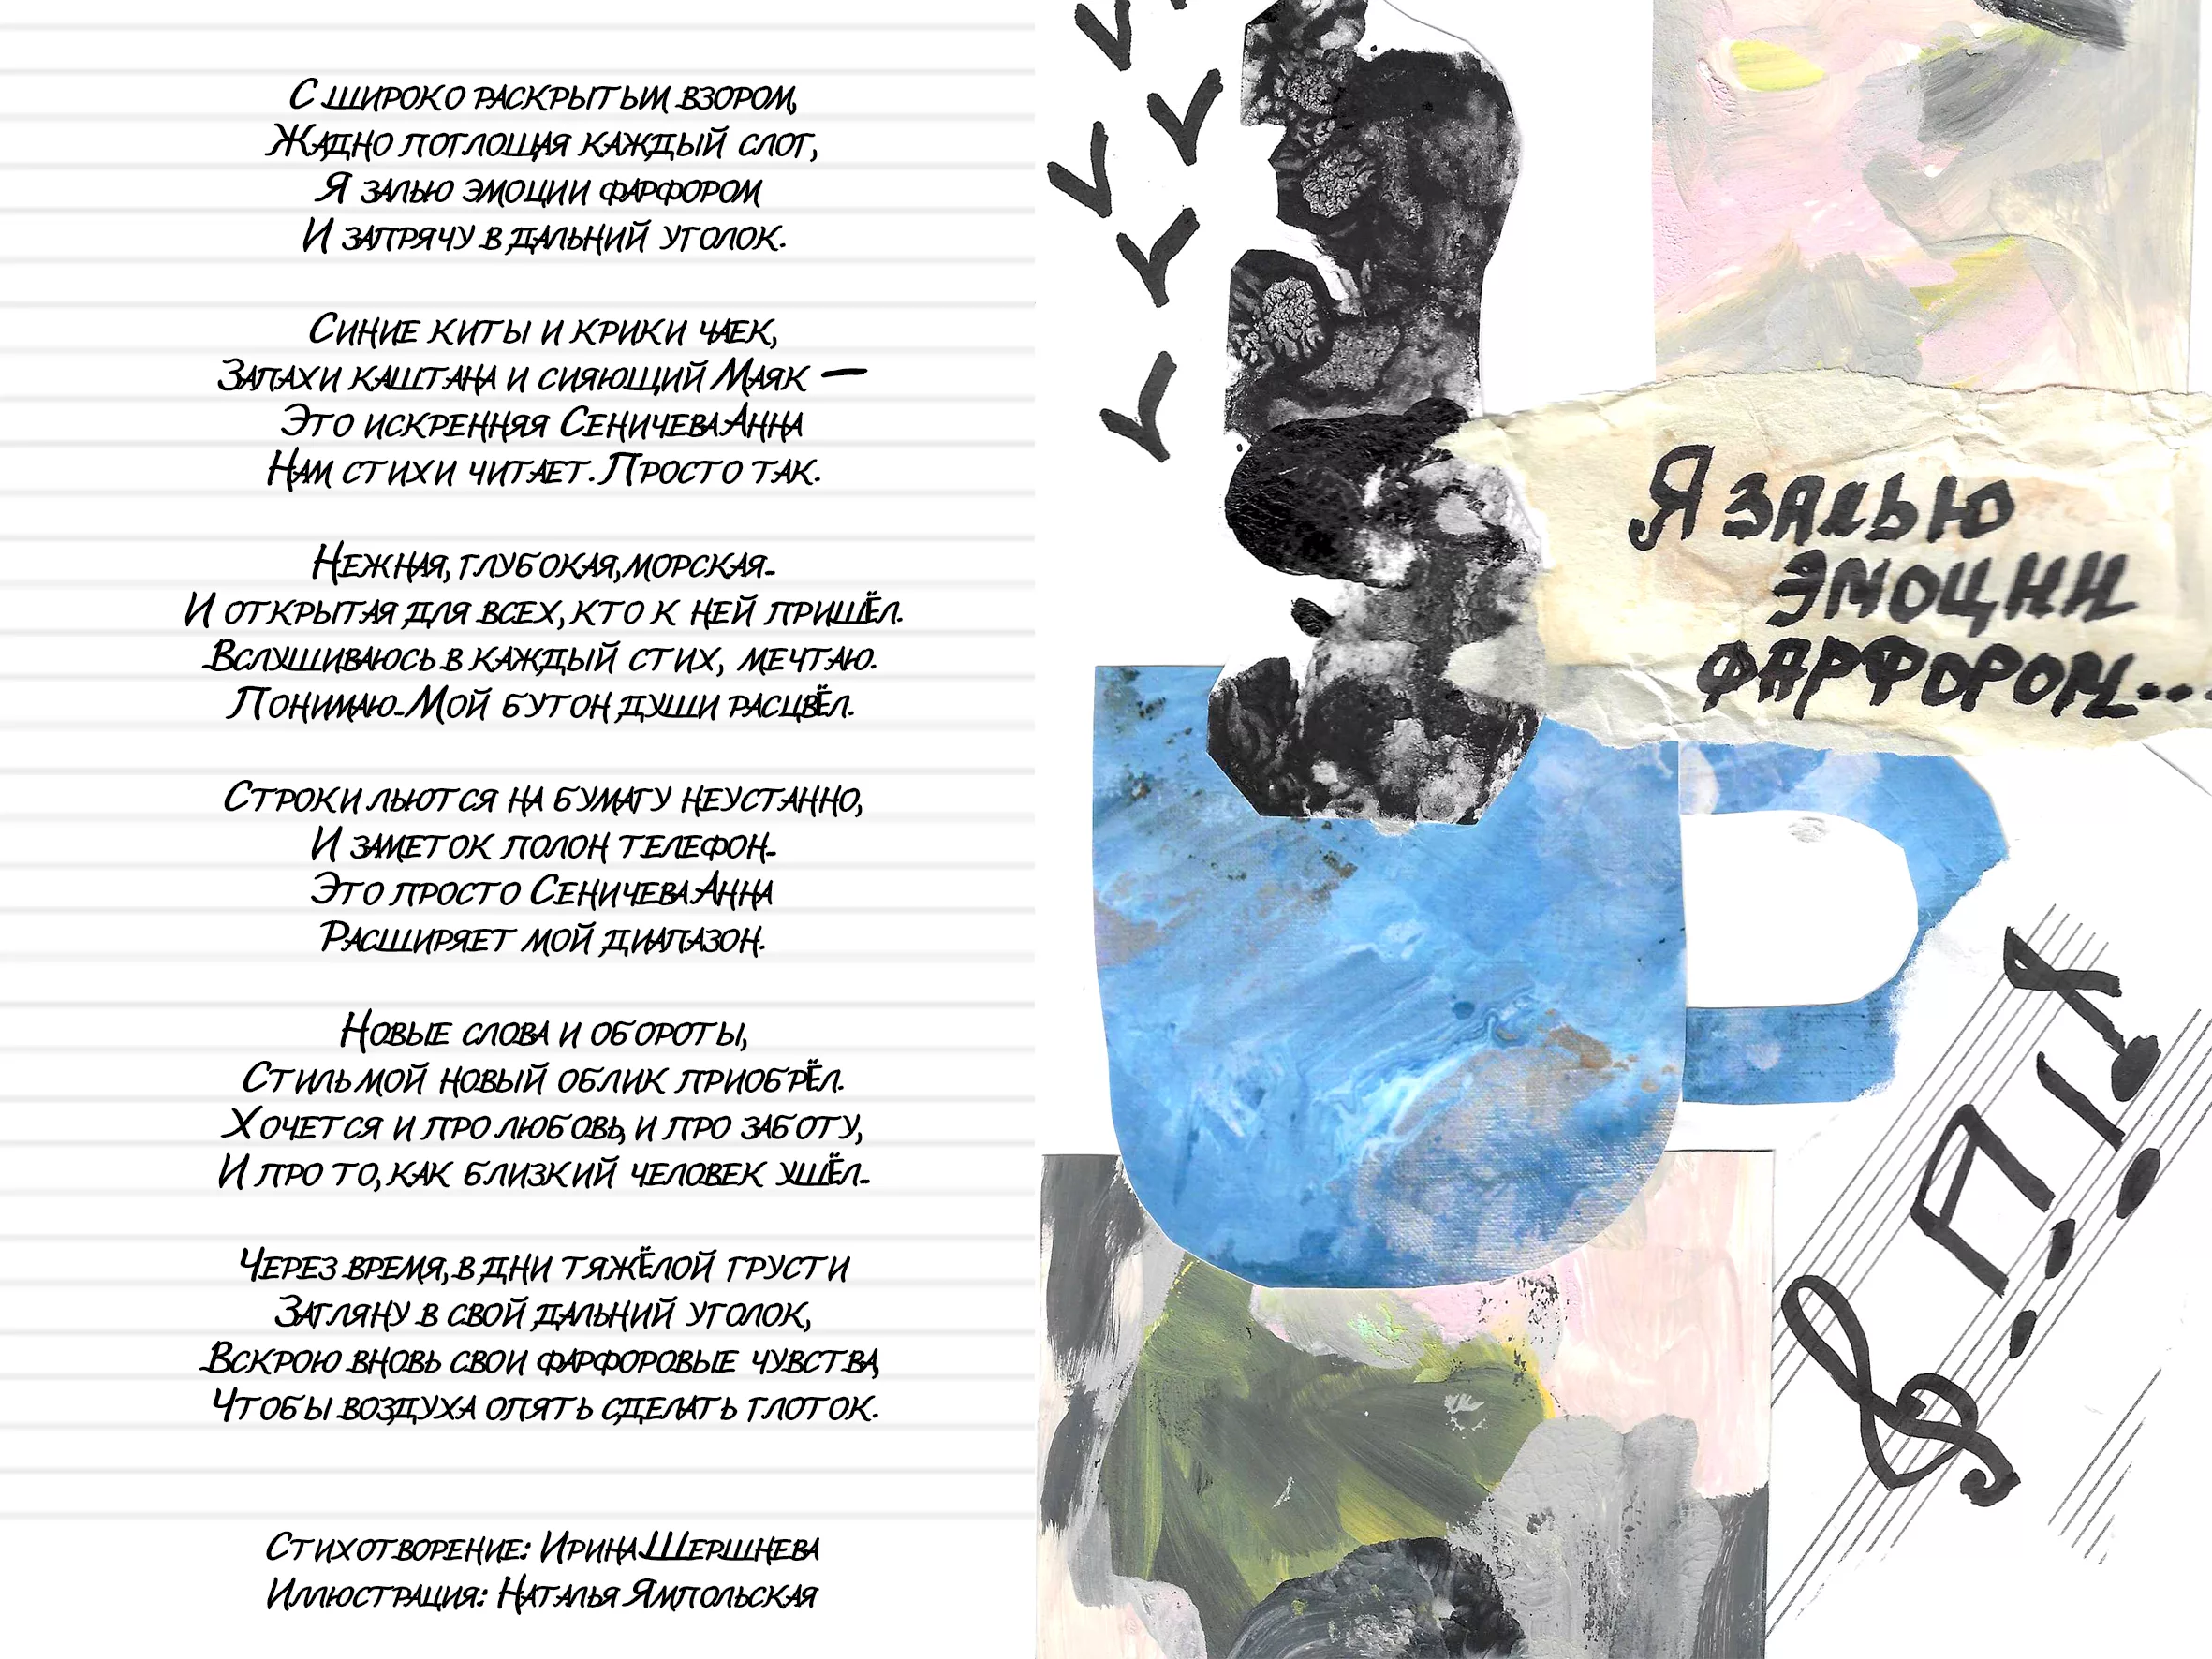 С широко раскрытым взором,
Жадно поглощая каждый слог,
Я залью эмоции фарфором
И запрячу в дальний уголок.
Синие киты и крики чаек,
Запахи каштана и сияющий Маяк —
Это искренняя Сеничева Анна
Нам стихи читает. Просто так.
Нежная, глубокая, морская.
И открытая для всех, кто к ней пришёл.
Вслушиваюсь в каждый стих, мечтаю.
Понимаю. Мой бутон души расцвёл.
Строки льются на бумагу неустанно,
И заметок полон телефон.
Это просто Сеничева Анна
Расширяет мой диапазон.
Новые слова и обороты,
Стиль мой новый облик приобрёл.
Хочется и про любовь, и про заботу,
И про то, как близкий человек ушёл.
Через время, в дни тяжёлой грусти
Загляну в свой дальний уголок,
Вскрою вновь свои фарфоровые чувства,
Чтобы воздуха опять сделать глоток.
Стихотворение: Ирина Шершнева
Иллюстрация: Наталья Ямпольская
Я залью
эмоции
фарфором...